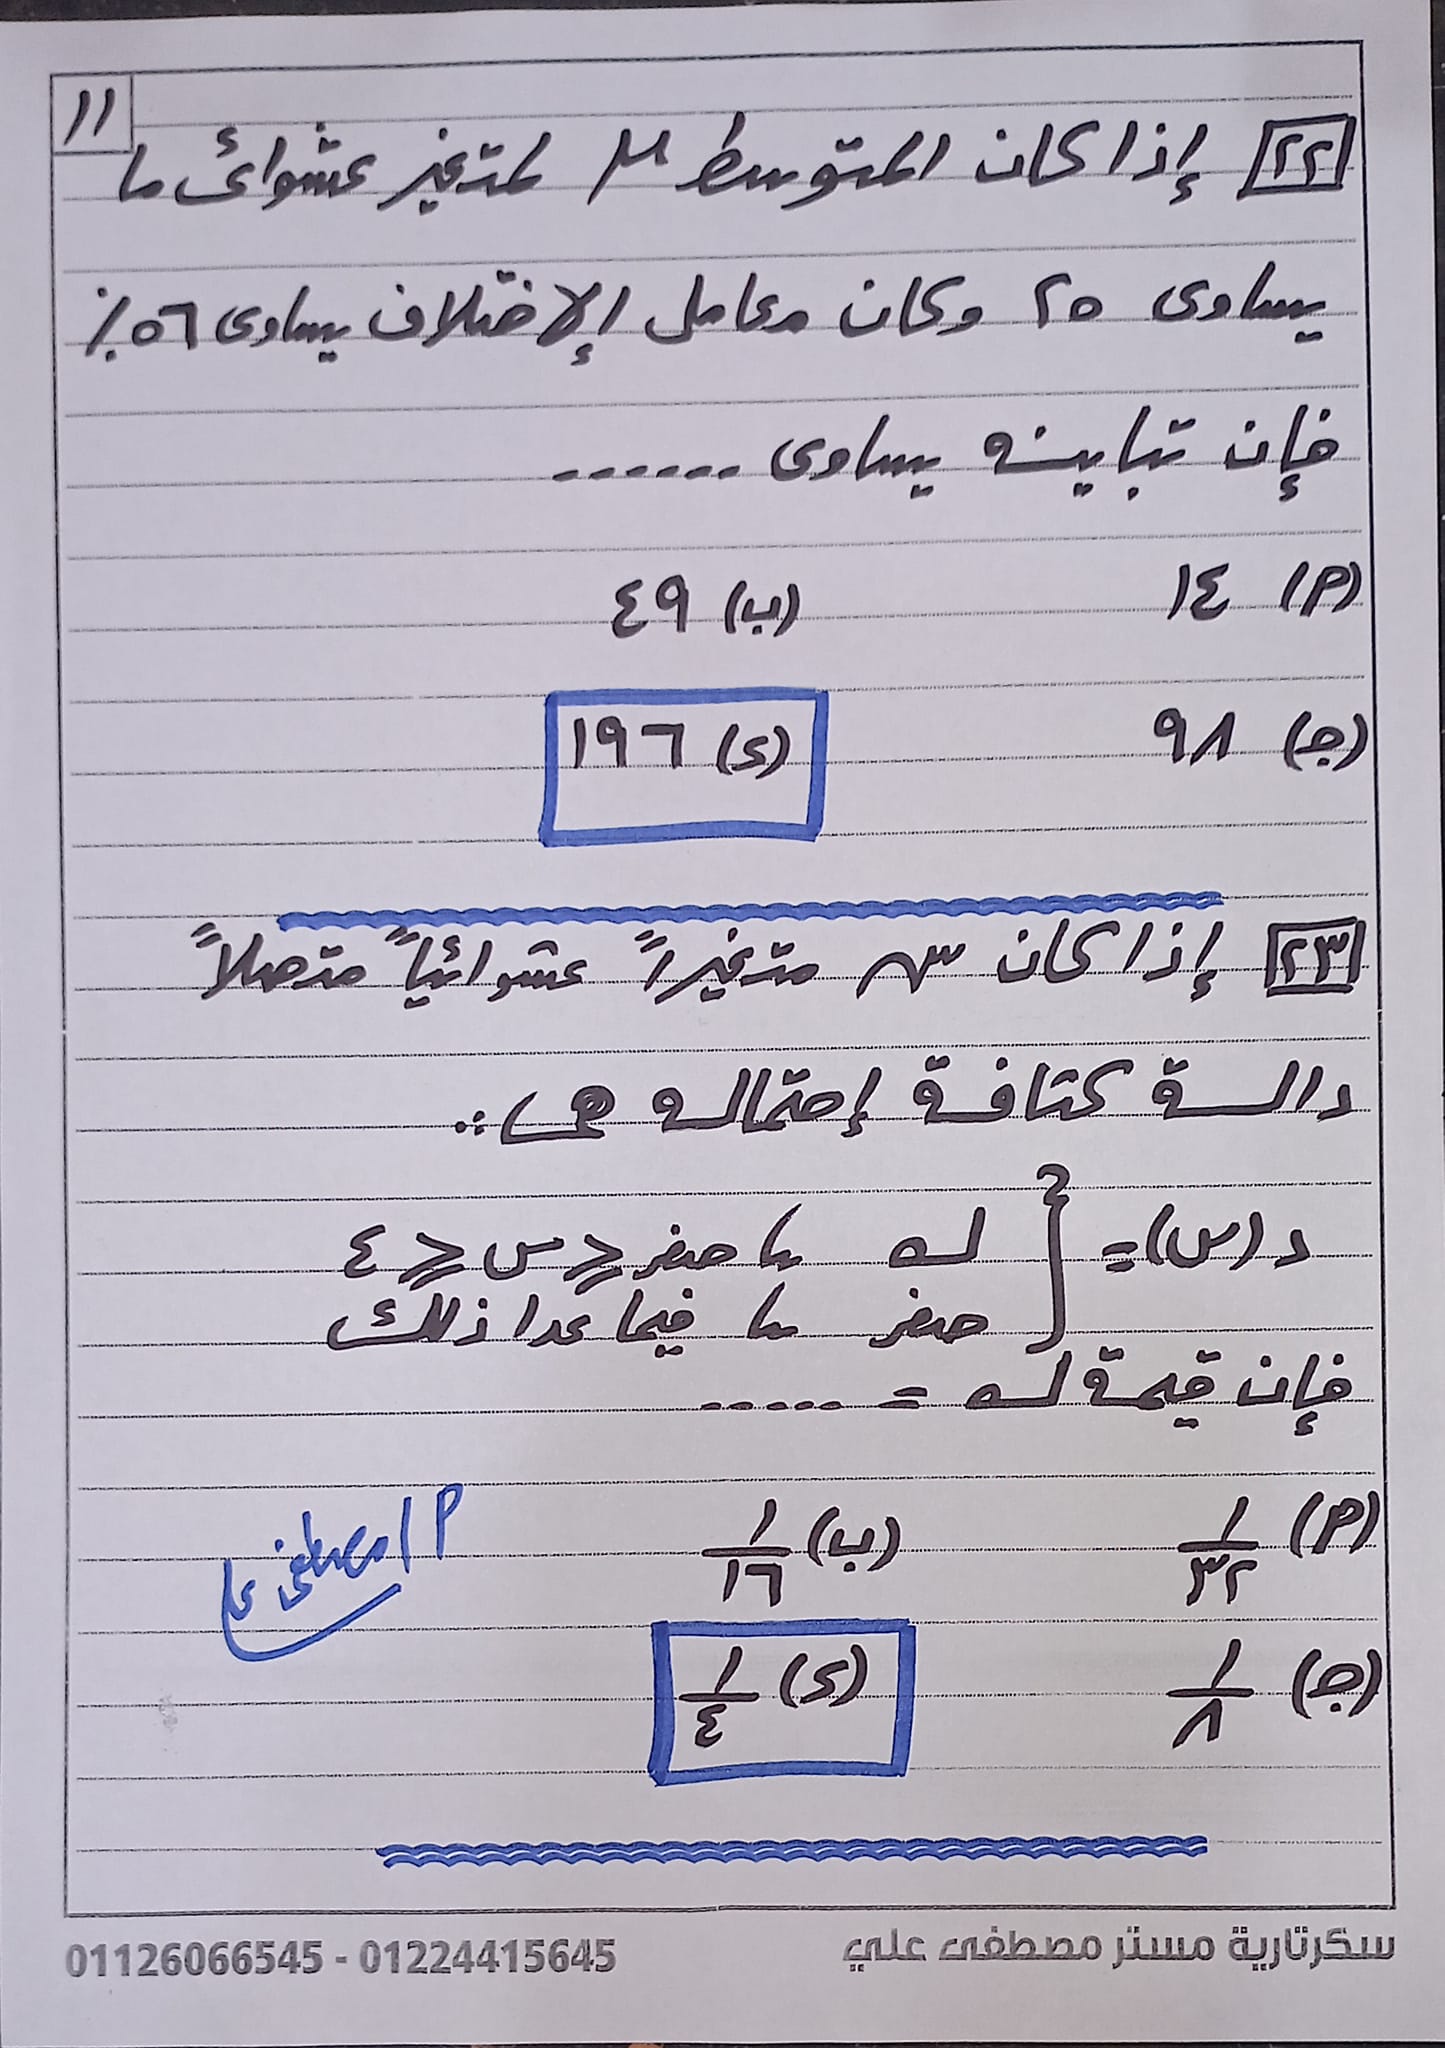 ١١
٢٢ إذا كان المتوسط μ لمتغير عشوائى ما
يساوى ٢٥ وكان معامل الإختلاف يساوى ٥٦٪
فإن تباينه يساوى ------
(أ) ١٤ (ب) ٤٩
(جـ) ٩٨ (د) ١٩٦
٢٣ إذا كان سہ متغيراً عشوائياً متصلاً
دالـة كثافة إحتماله هى :.
د (س) = { لـه ، صفر ≤ س ≤ ٤
صفر ، فيما عدا ذلك
فإن قيمة لـه = -----
(أ) ١/٣٢ (ب) ١/١٦
أ / مصطفى على
(جـ) ١/٨ (د) ١/٤
سكرتارية مستر مصطفى علي 01224415645 - 01126066545